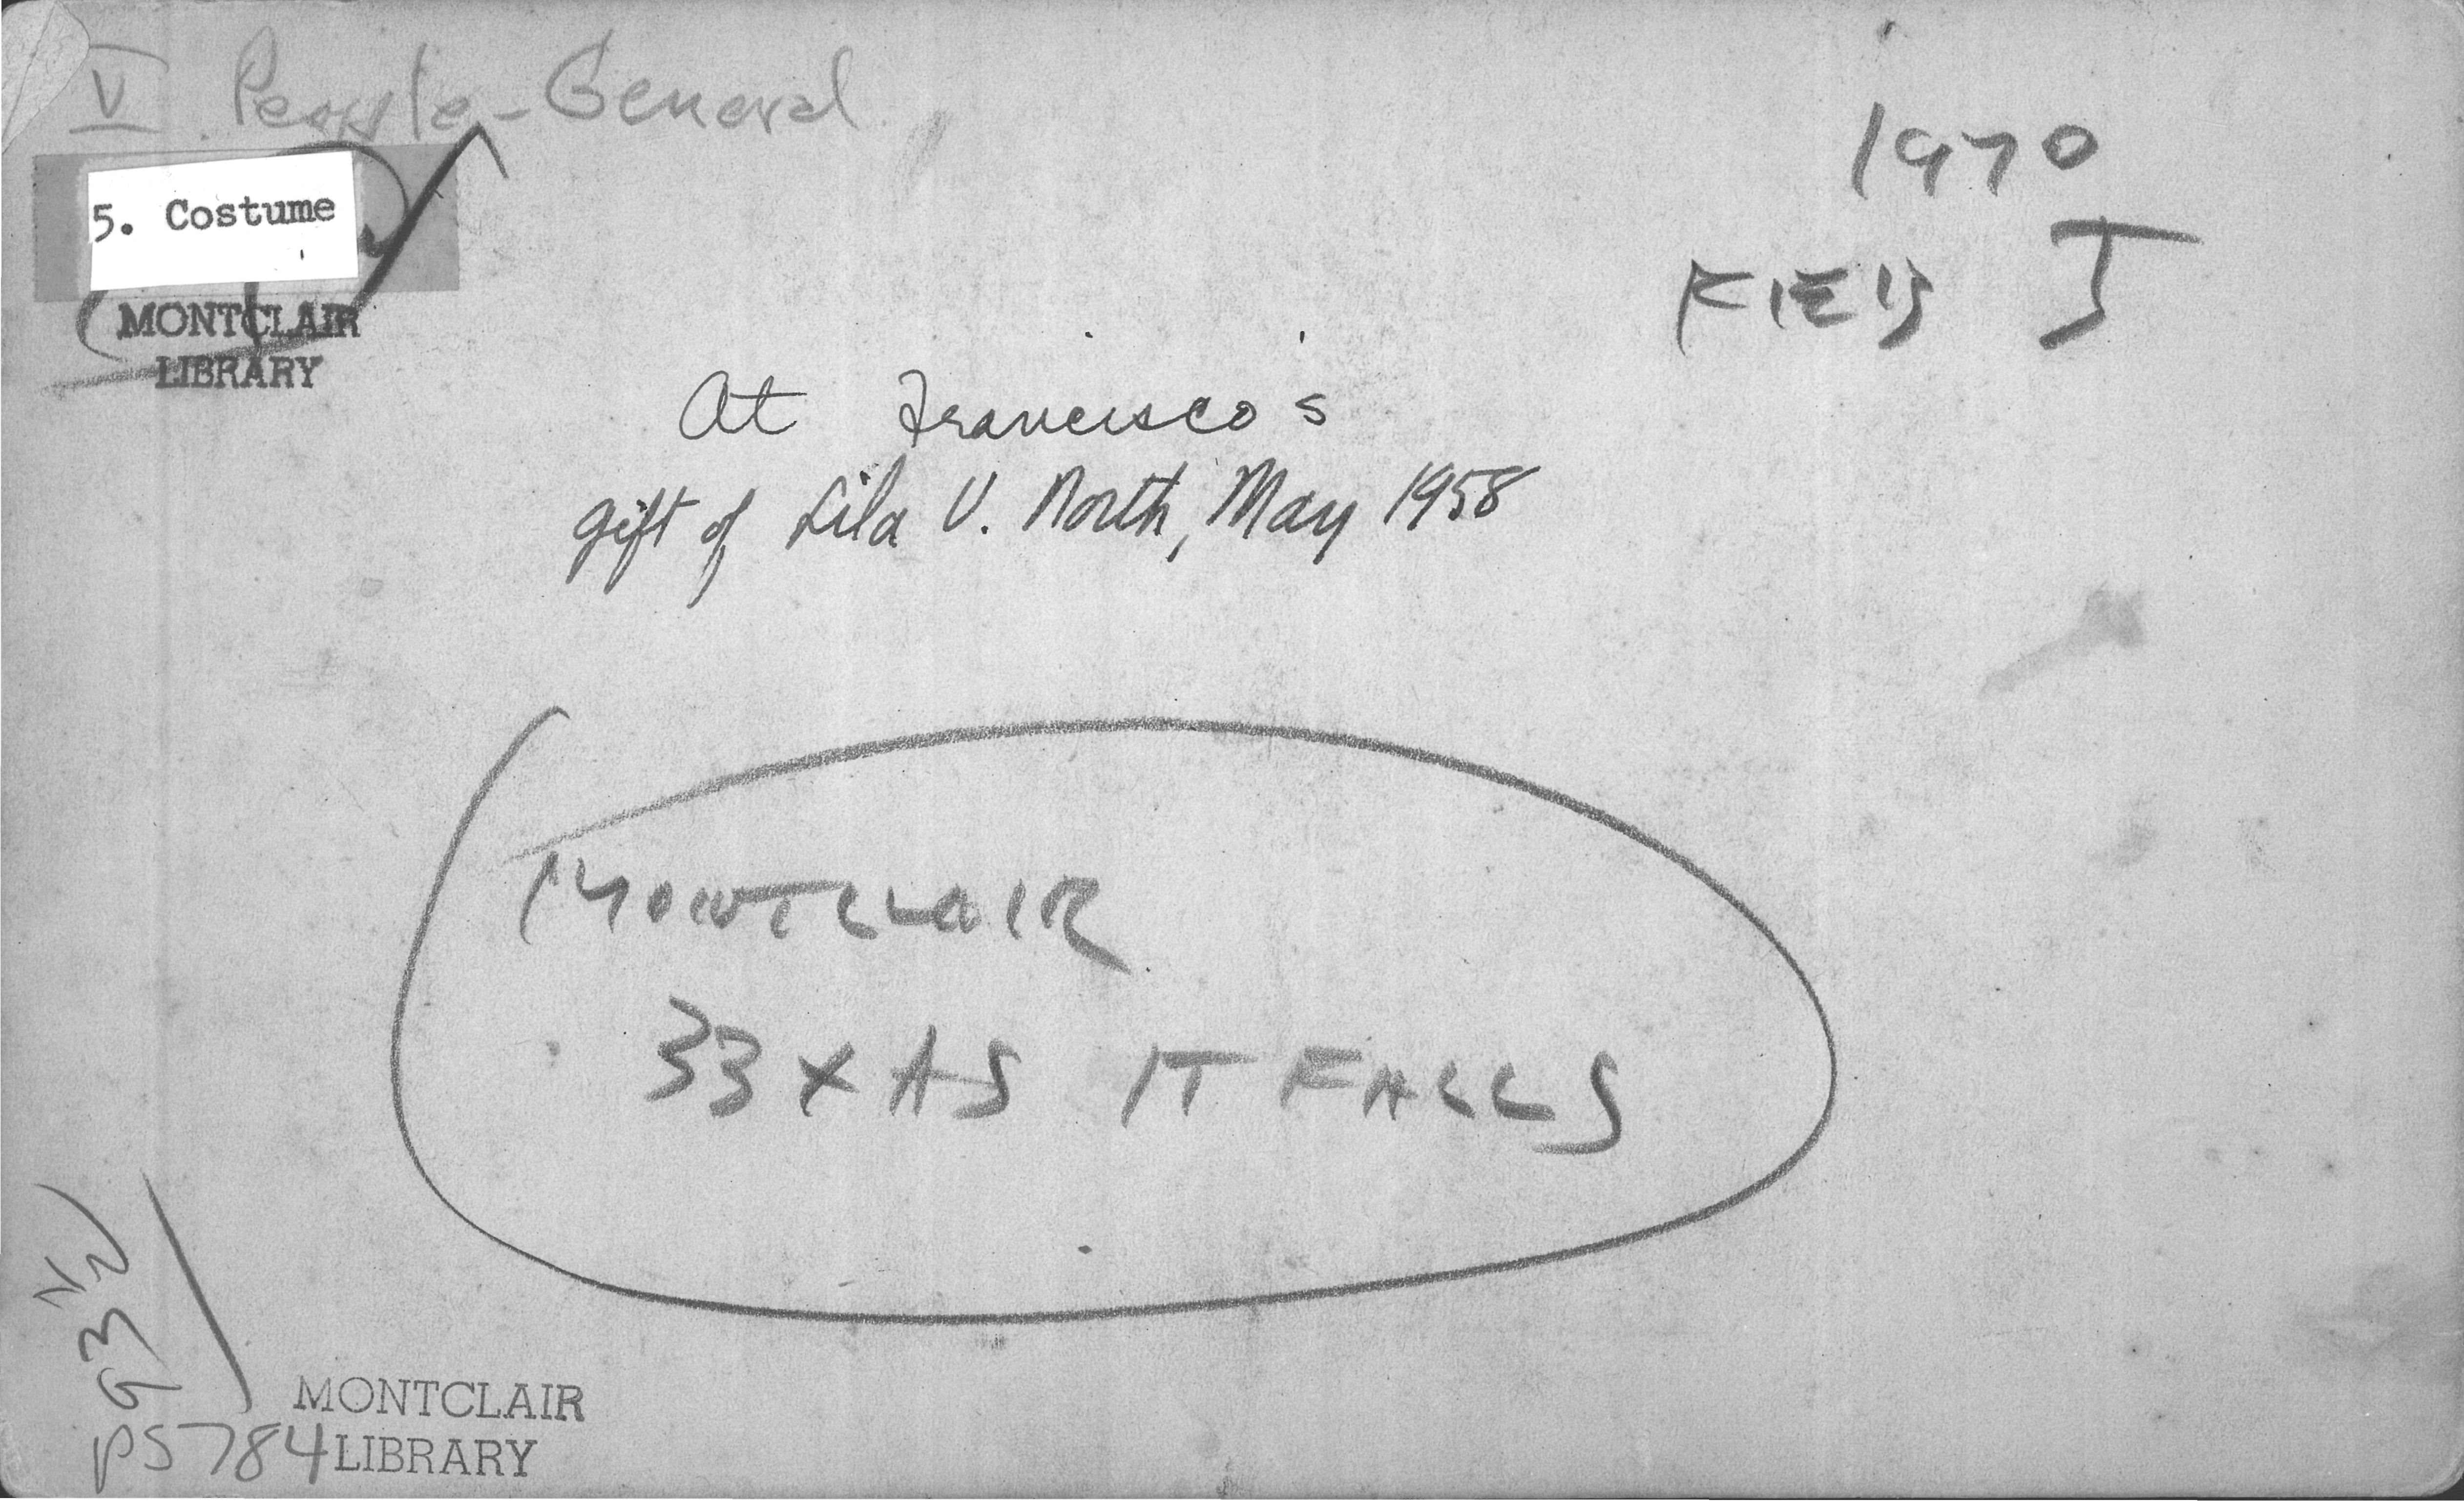 V People-General
5. Costume
MONTCLAIR
LIBRARY
1970
FIELD J
At Francisco's
gift of Lila V. North, May 1958
MONTCLAIR
33 X AS IT FALLS
93
PS784
MONTCLAIR
LIBRARY